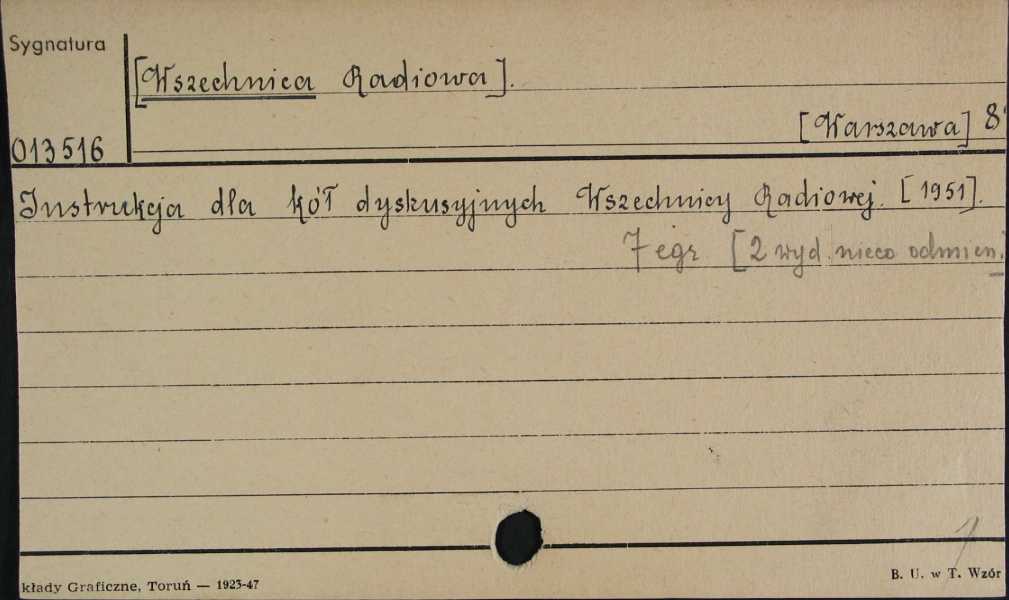 Sygnatura
[Wszechnica Radiowa].
[Warszawa] 8°
013516
Instrukcja dla kół dyskusyjnych Wszechnicy Radiowej. [1951].
7 egz [2 wyd. nieco odmien.
kłady Graficzne, Toruń — 1923-47
B. U. w T. Wzór